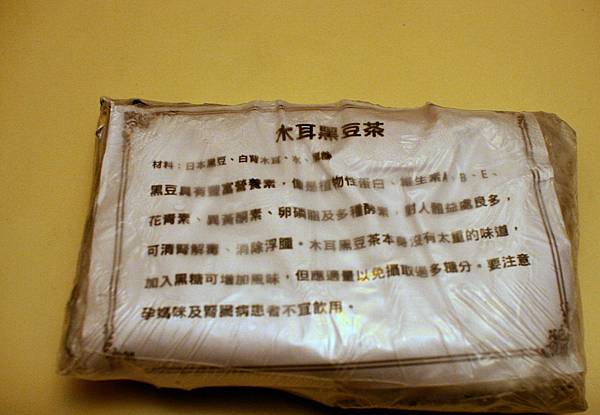 木耳黑豆茶
材料：日本黑豆、白背木耳、水、黑糖
黑豆具有豐富營養素，像是植物性蛋白、維生素A、B、E、
花青素、異黃酮素、卵磷脂及多種酵素，對人體益處良多，
可清腎解毒、消除浮腫。木耳黑豆茶本身沒有太重的味道，
加入黑糖可增加風味，但應適量以免攝取過多糖分。要注意
孕媽咪及腎臟病患者不宜飲用。